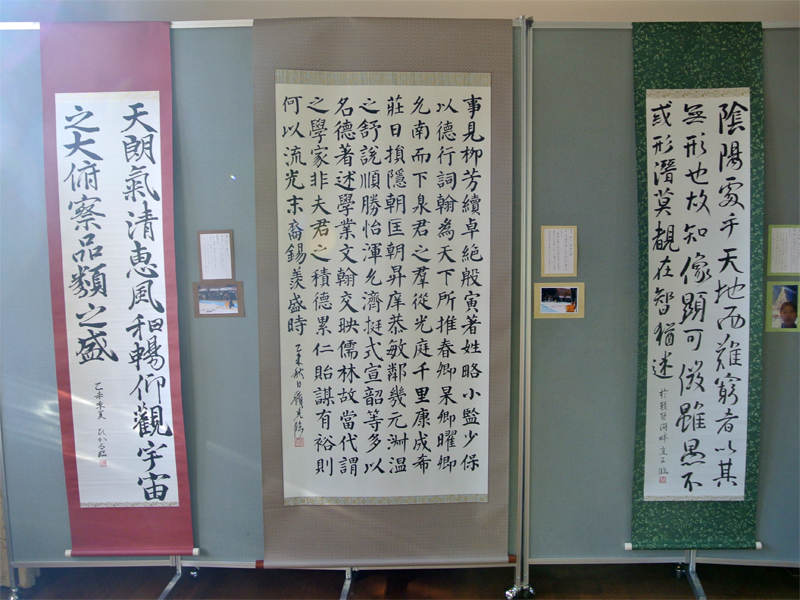 陰陽處乎天地而難窮者以其
無形也故知像顯可徵雖愚不
惑形潛莫覩在智猶迷
事見柳芳續卓絶殷寅著姓略小監少保
以德行詞翰為天下所推春卿杲卿曜卿
允南而下泉君之羣從光庭千里康成希
莊日損隱朝匡朝昇庠恭敏鄰幾元淵温
之舒說順勝怡渾允濟挺式宣韶等多以
名德著述學業文翰交映儒林故當代謂
之學家非夫君之積德累仁貽謀有裕則
何以流光末裔錫羨盛時
天朗氣清恵風和暢仰觀宇宙
之大俯察品類之盛